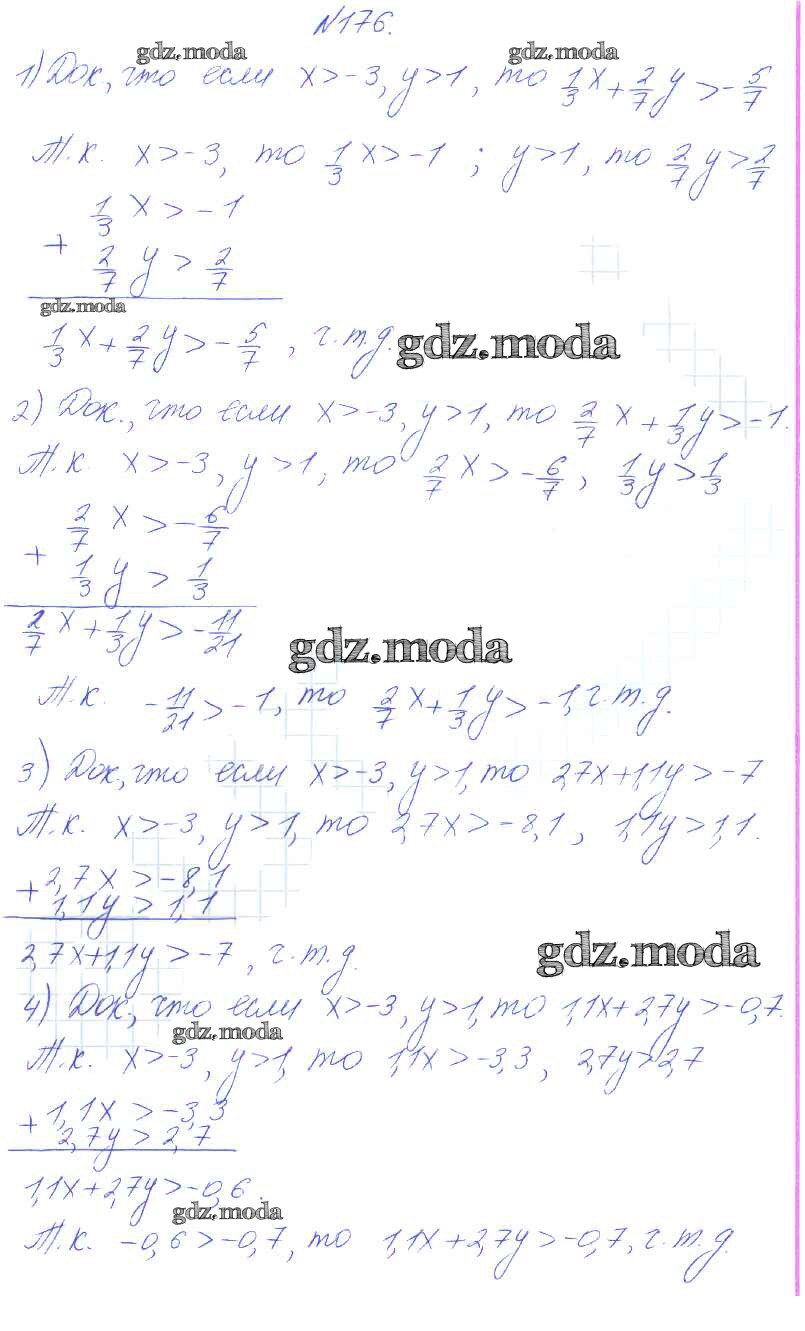 №176.
gdz.moda gdz.moda
1) Док, что если x>-3, y>1, то 1/3 x + 2/7 y > -5/7
Т.к. x>-3, то 1/3 x>-1 ; y>1, то 2/7 y>2/7
1/3 x > -1
+
2/7 y > 2/7
gdz.moda
1/3 x + 2/7 y > -5/7 , ч.т.д.
gdz.moda
2) Док., что если x>-3, y>1, то 2/7 x + 1/3 y > -1.
Т.к. x>-3, y>1, то 2/7 x > -6/7, 1/3 y > 1/3
2/7 x > -6/7
+
1/3 y > 1/3
2/7 x + 1/3 y > -11/21
gdz.moda
Т.к. -11/21 > -1, то 2/7 x + 1/3 y > -1, ч.т.д.
3) Док, что если x>-3, y>1, то 2,7x+1,1y>-7
Т.к. x>-3, y>1, то 2,7x>-8,1, 1,1y>1,1.
+ 2,7x > -8,1
1,1y > 1,1
2,7x+1,1y > -7, ч.т.д.
gdz.moda
4) Док, что если x>-3, y>1, то 1,1x+2,7y>-0,7.
gdz.moda
Т.к. x>-3, y>1, то 1,1x>-3,3, 2,7y>2,7
+ 1,1x > -3,3
2,7y > 2,7
1,1x+2,7y>-0,6.
gdz.moda
Т.к. -0,6>-0,7, то 1,1x+2,7y>-0,7, ч.т.д.